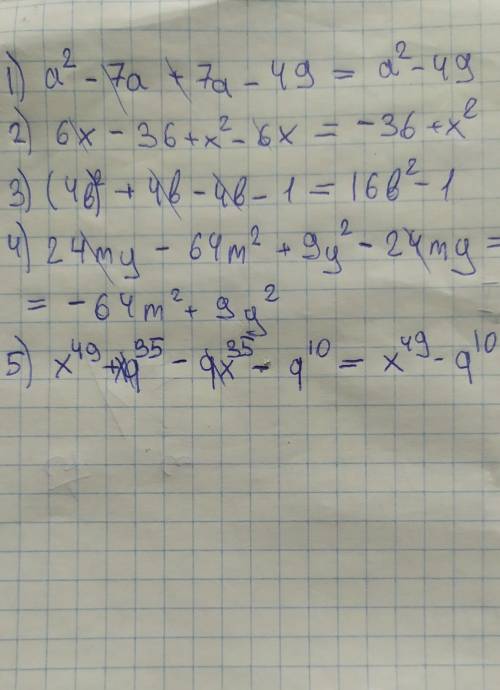 1) a² - 7a + 7a - 49 = a² - 49
2) 6x - 36 + x² - 6x = -36 + x²
3) (4b)² + 4b - 4b - 1 = 16b² - 1
4) 24my - 64m² + 9y² - 24my =
= -64m² + 9y²
5) x⁴⁹ + xq³⁵ - qx³⁵ - q¹⁰ = x⁴⁹ - q¹⁰